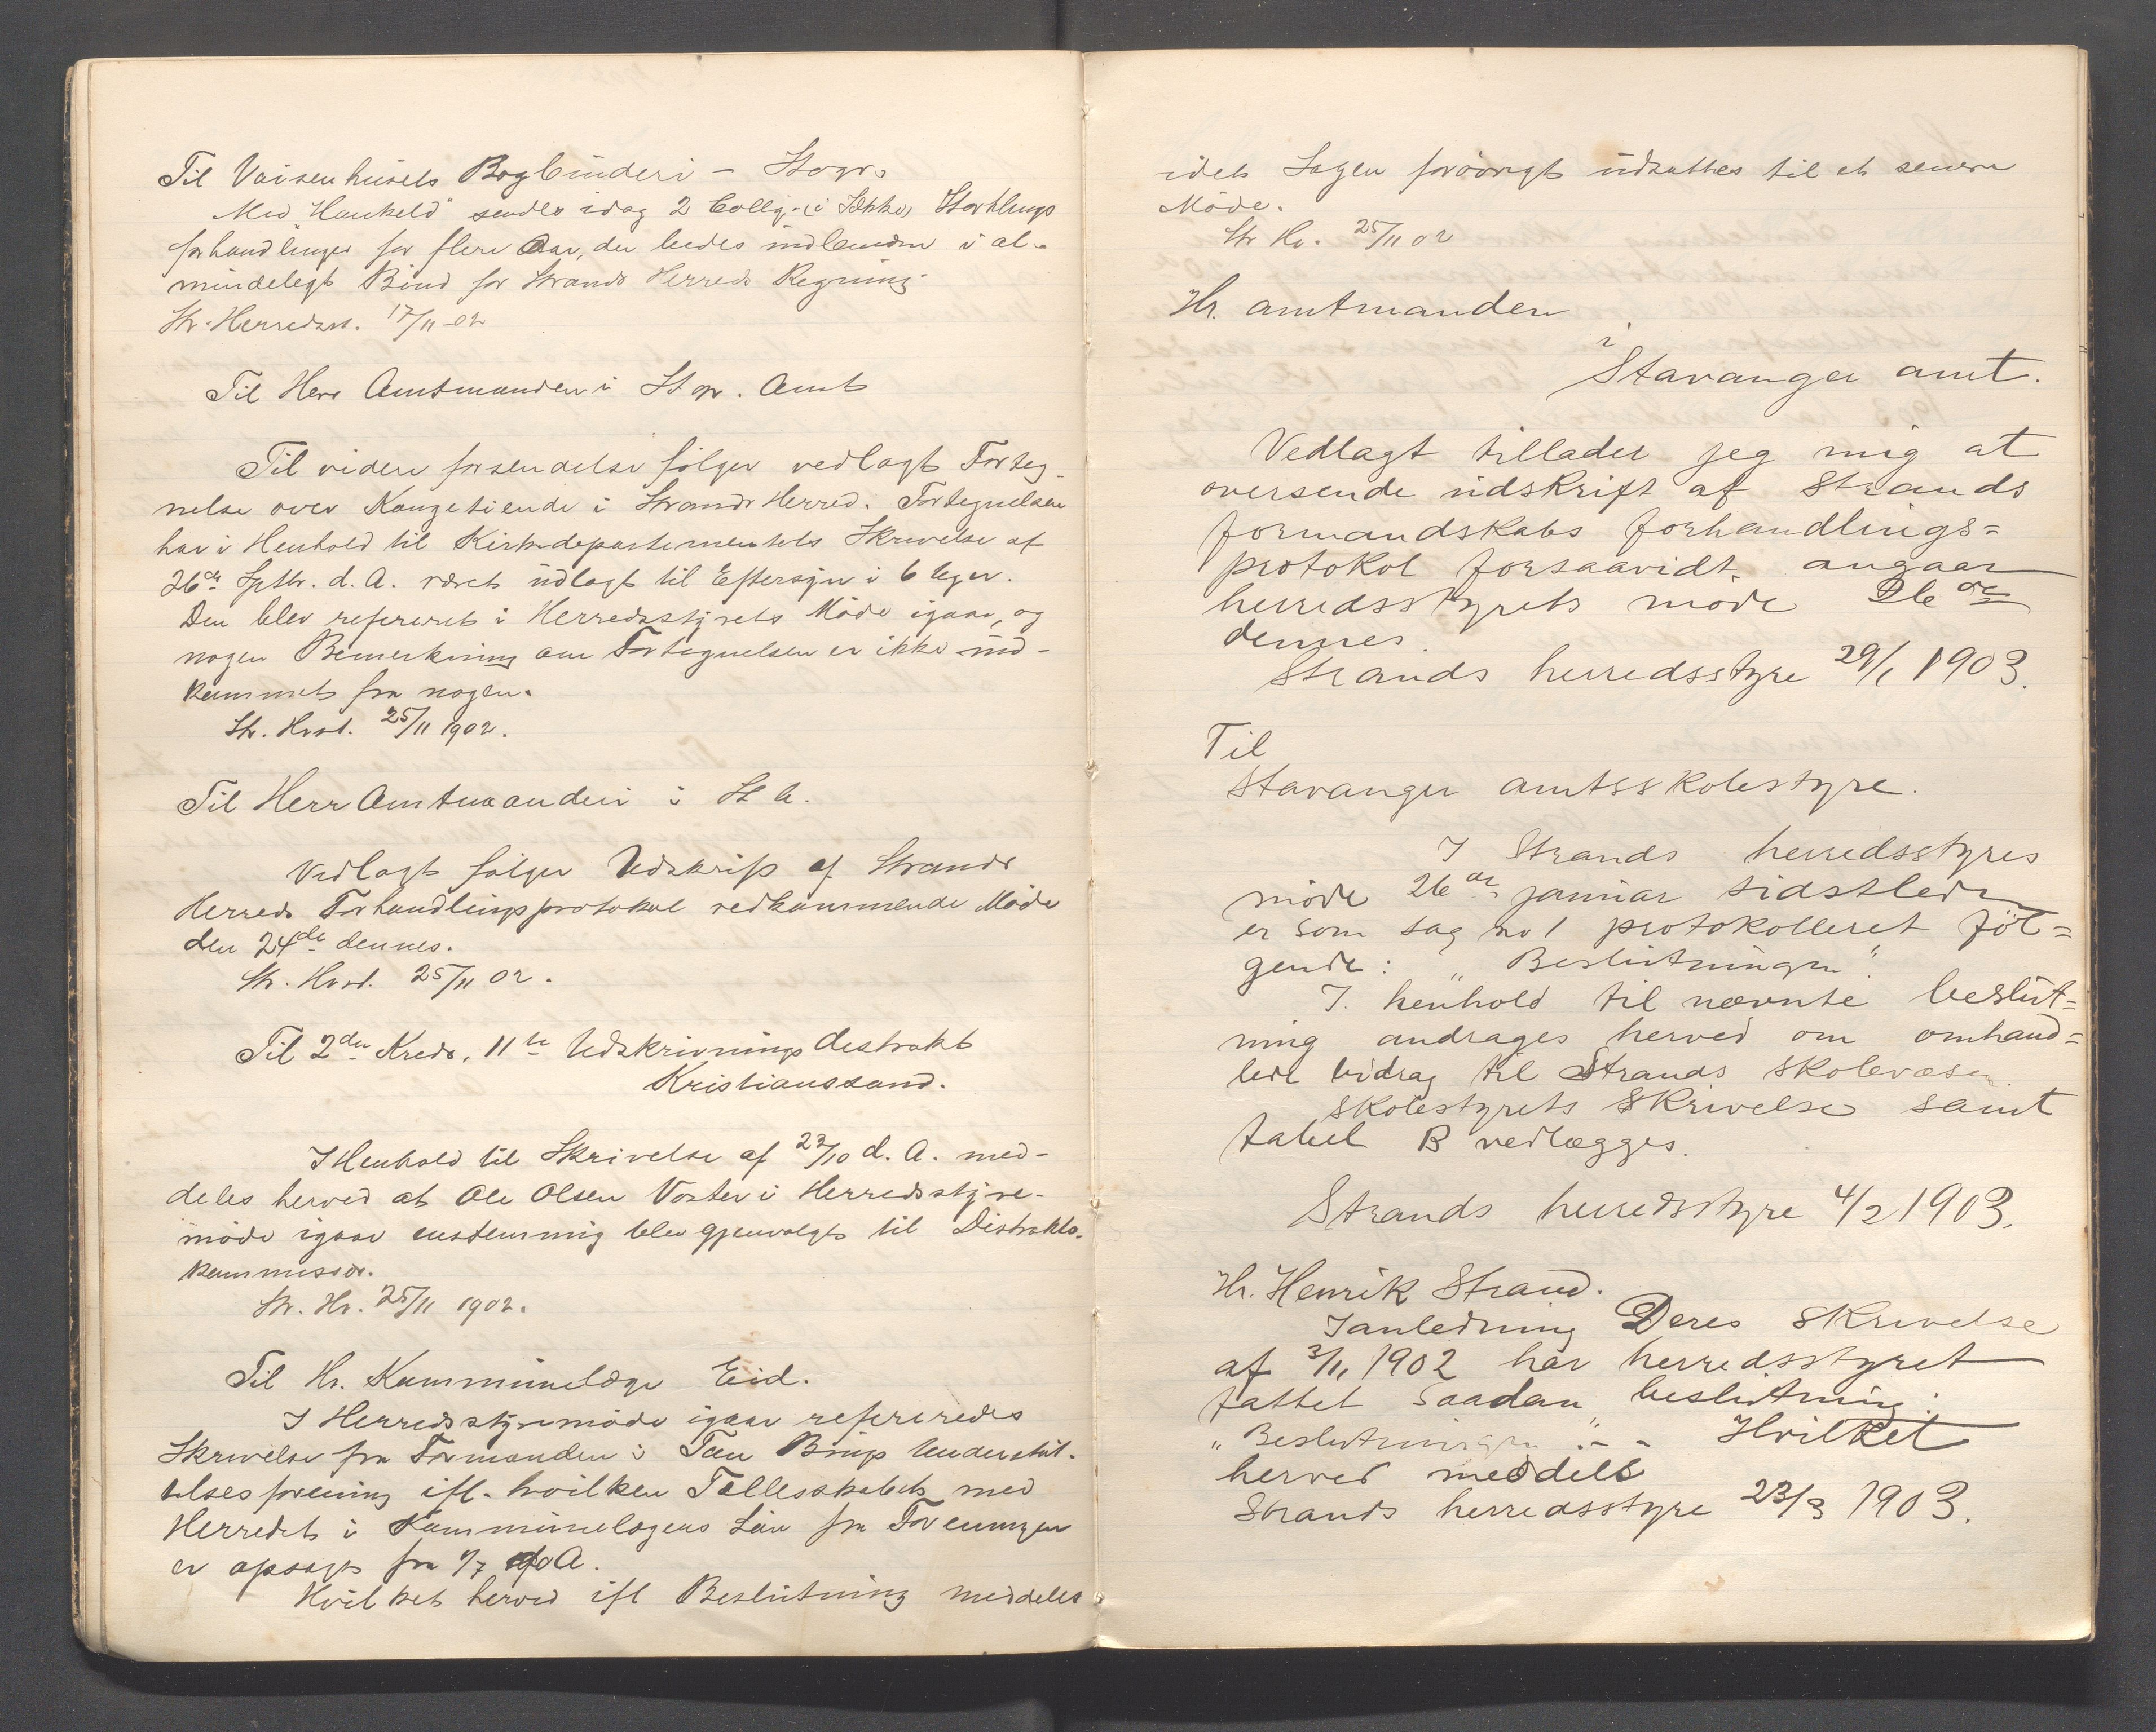 Til Vaisenhusets Bogbinderi – Stvgr.
Med "Haukeld" sendes idag 2 Colly- (i Sække) Storthings
forhandlinger for flere Aar, der bedes indbunden i al-
mindeligt Bind for Strands Herreds Regning.
Str. Herredsst. 17/11-02
Til Herr Amtmanden i Stvgr. Amt
Til videre forsendelse følger vedlagt Forteg-
nelse over Kongetiende i Strands Herred. Fortegnelsen
har i Henhold til Kirkedepartementets Skrivelse af
26de Septbr. d. A. været udlagt til Eftersyn i 6 Uger.
Den blev refereret i Herredsstyrets Møde igaar, og
nogen Bemerkning om Fortegnelsen er ikke ind-
kommet fra nogen.
Str. Hrst. 25/11 1902.
Til Herr Amtmanden i St. A.
Vedlagt følger Udskrift af Strands
Herreds Forhandlingsprotokol vedkommende Møde
den 24de dennes.
Str. Hrst. 25/11 02.
Til 2den Kreds, 11te Udskrivningsdistrikt
Kristianssand.
I Henhold til Skrivelse af 23/10 d. A. med-
deles herved at Ole Olsen Voster i Herredsstyre-
møde igaar enstemmig blev gjenvalgt til Distrikts-
kommissær.
Str. Hr. 25/11 1902.
Til Hr. Kommunelæge Eid.
I Herredsstyremøde igaar refereredes
Skrivelse fra Formanden i Tau Brugs Understøt-
telsesforening ifl. hvilken Fællesskabet med
Herredet i Kommunelægens Løn fra Foreningen
er opsagt fra 1/7 d. A.
Hvilket herved ifl Beslutning meddeles
idet Sagen forøvrigt udsattes til et senere
Møde.
Str Hr. 25/11 02
Hr. amtmanden
i
Stavanger amt.
Vedlagt tillader jeg mig at
oversende udskrift af Strands
formandskabs forhandlings=
protokol forsaavidt angaar
herredsstyrets møde 26de
dennes.
Strands herredsstyre 29/1 1903.
Til
Stavanger amtsskolestyre.
I Strands herredsstyres
møde 26de januar sidstleden
er som sag no 1 protokolleret føl=
gende: "Beslutningen".
I henhold til nævnte beslut=
ning andrages herved om omhand=
lede bidrag til Strands skolevæsen.
Skolestyrets skrivelse samt
tabel B vedlægges.
Strands herredsstyre 4/2 1903.
Hr. Henrik Strand.
I anledning Deres skrivelse
af 3/11 1902 har herredsstyret
fattet saadan beslutning:
"Beslutningen" . - - Hvilket
herved meddeles
Strands herredsstyre 23/3 1903.